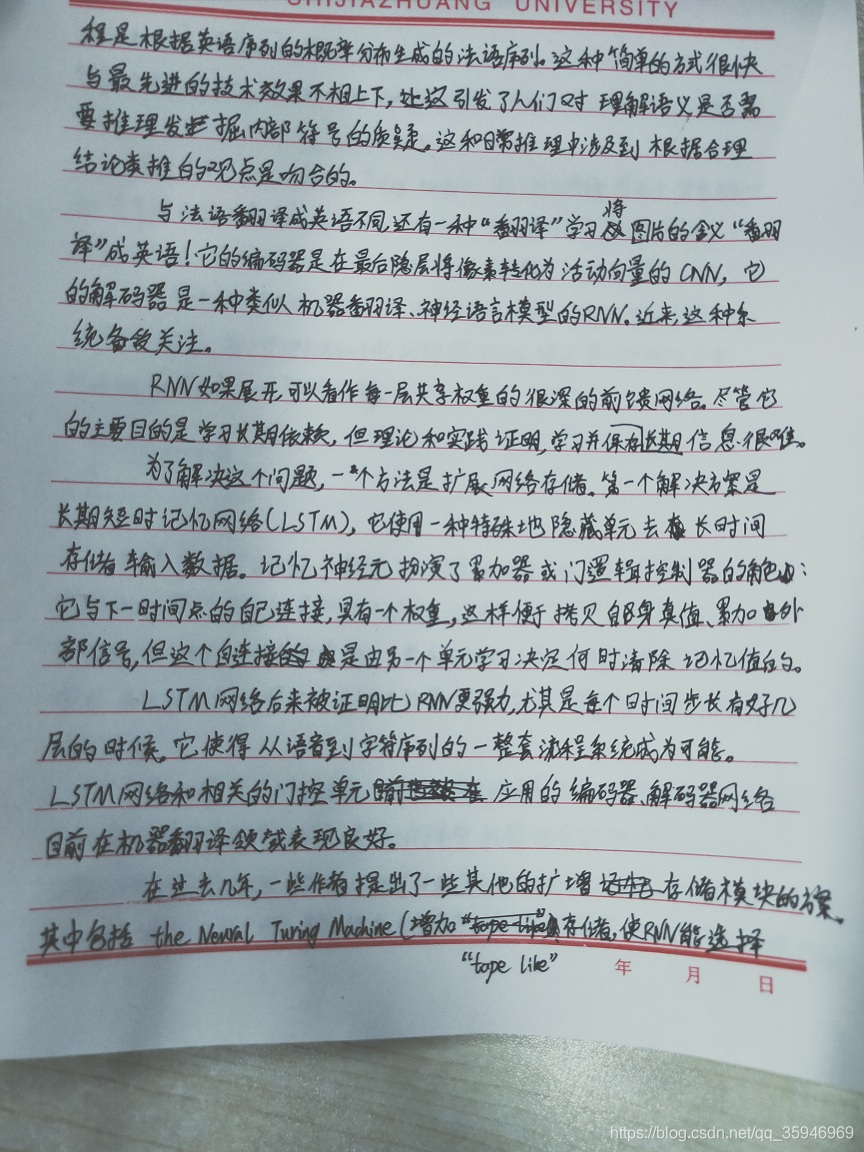 SHIJIAZHUANG UNIVERSITY
程是根据英语序列的概率分布生成的法语序列。这种简单的方式很快
与最先进的技术效果不相上下,这引发了人们对理解语义是否需
要推理发掘内部符号的质疑。这和日常推理中涉及到根据合理
结论类推的观点是吻合的。
与法语翻译成英语不同,还有一种“翻译”学习将图片的含义“翻
译”成英语!它的编码器是在最后隐层将像素转化为活动向量的CNN,它
的解码器是一种类似机器翻译、神经语言模型的RNN。近来,这种系
统备受关注。
RNN如果展开,可以看作每一层共享权重的很深的前馈网络。尽管它
的主要目的是学习长期依赖,但理论和实践证明,学习并保存长期信息很难。
为了解决这个问题,一个方法是扩展网络存储。第一个解决方案是
长期短时记忆网络(LSTM),它使用一种特殊地隐藏单元去长时间
存储输入数据。记忆神经元扮演了累加器或门逻辑控制器的角色:
它与下一时间点的自己连接,具有一个权重,这样便于拷贝自身真值、累加外
部信号,但这个自连接是由另一个单元学习决定何时清除记忆值的。
LSTM网络后来被证明比RNN更强力,尤其是每个时间步长有好几
层的时候。它使得从语音到字符序列的一整套流程系统成为可能。
LSTM网络和相关的门控单元应用的编码器、解码器网络
目前在机器翻译领域表现良好。
在过去几年,一些作者提出了一些其他的扩增存储模块的方案。
其中包括 the Neural Turing Machine(增加“tape like”存储,使RNN能选择
年 月 日
https://blog.csdn.net/qq_35946969